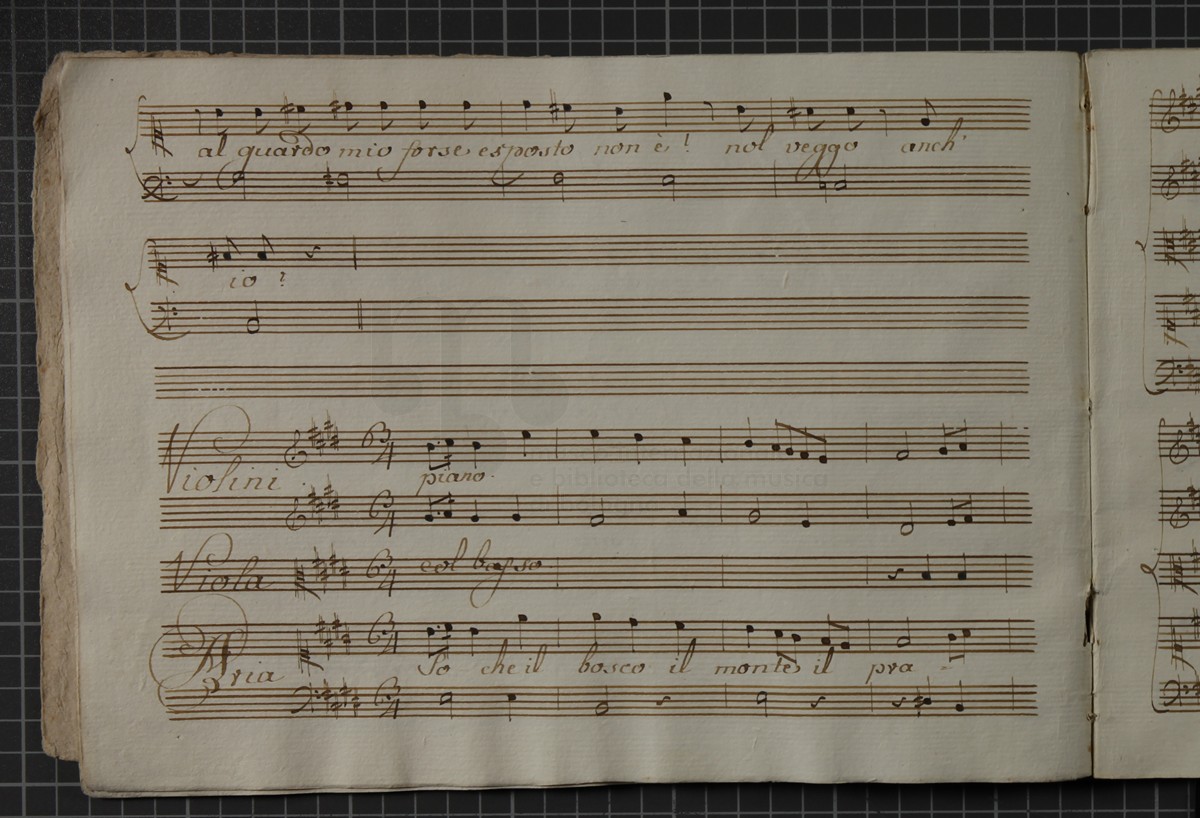 al guardo mio forse esposto non è! nol veggo anch'
io?
Violini
piano.
e biblioteca della musica
Viola col basso
Aria
So che il bosco il monte il pra -